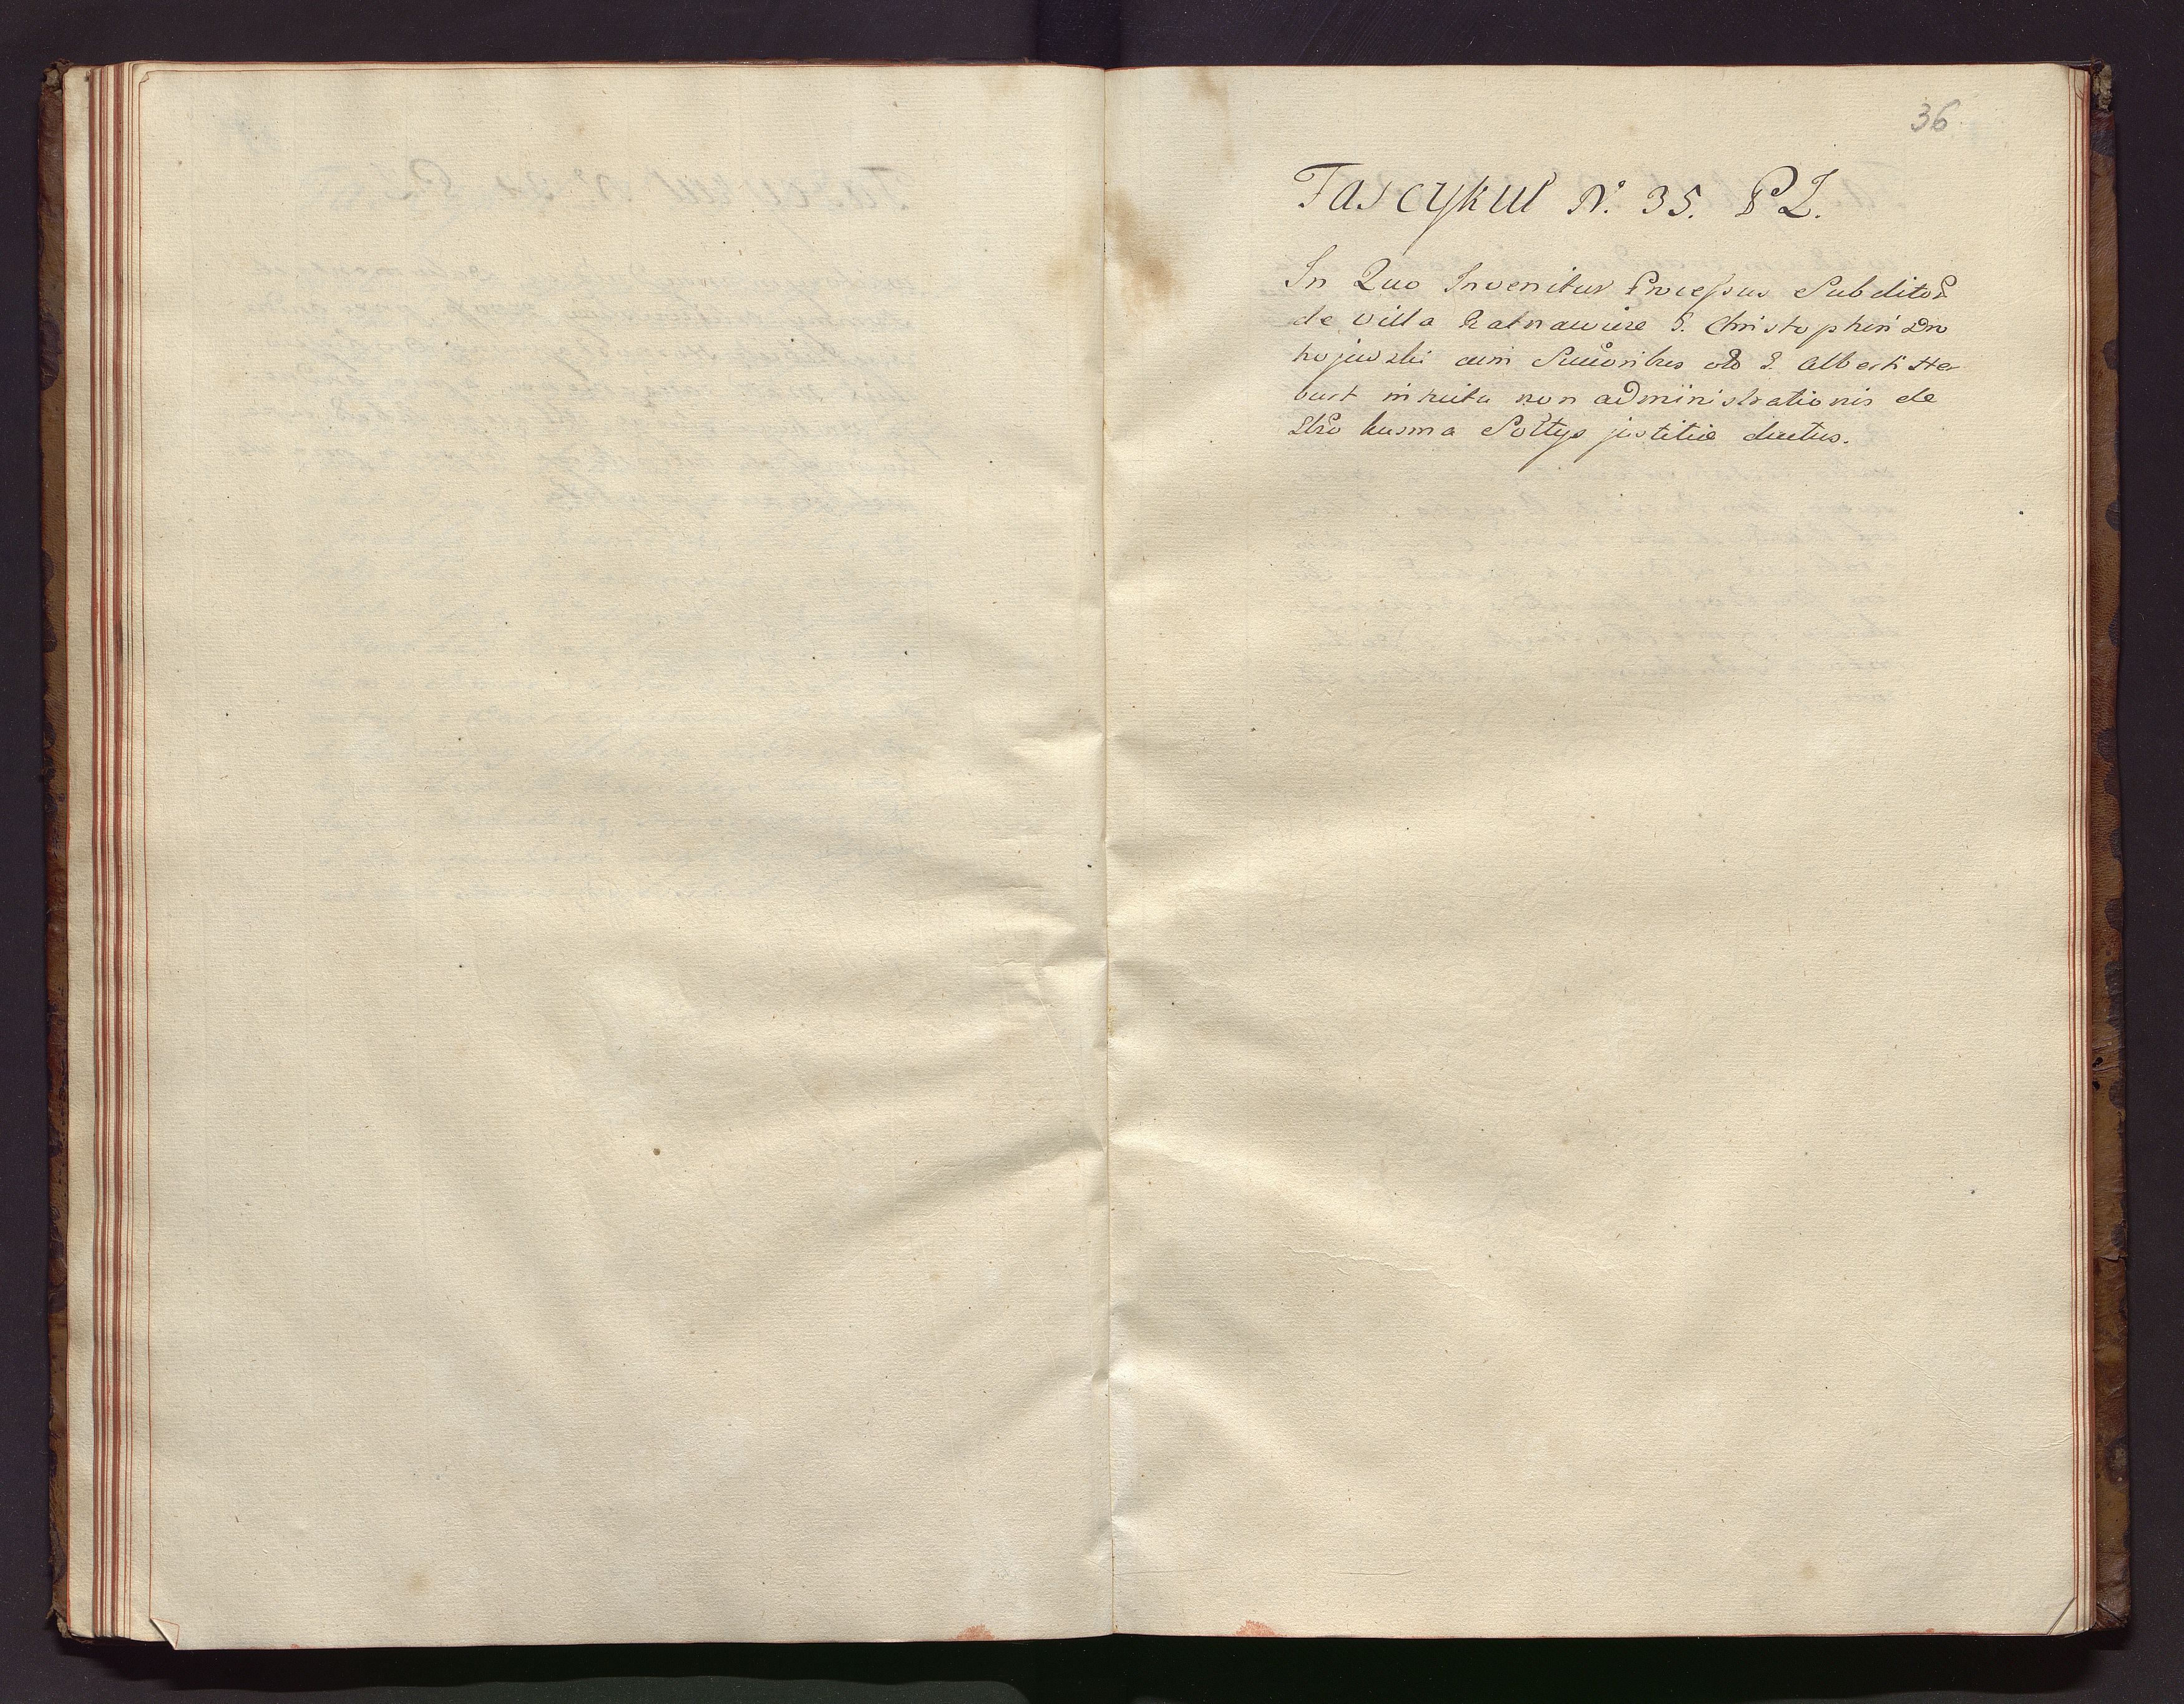 36
Fascykuł N. 35. P L.
In Quo Invenitur Processus Subditor
de villa Ratnawice G. Christophori Dro
hojewski cum Successoribus olo G. Alberti Her
burt intuitu non administrationis de
Stro kusma Sołtys justitiæ ductus.